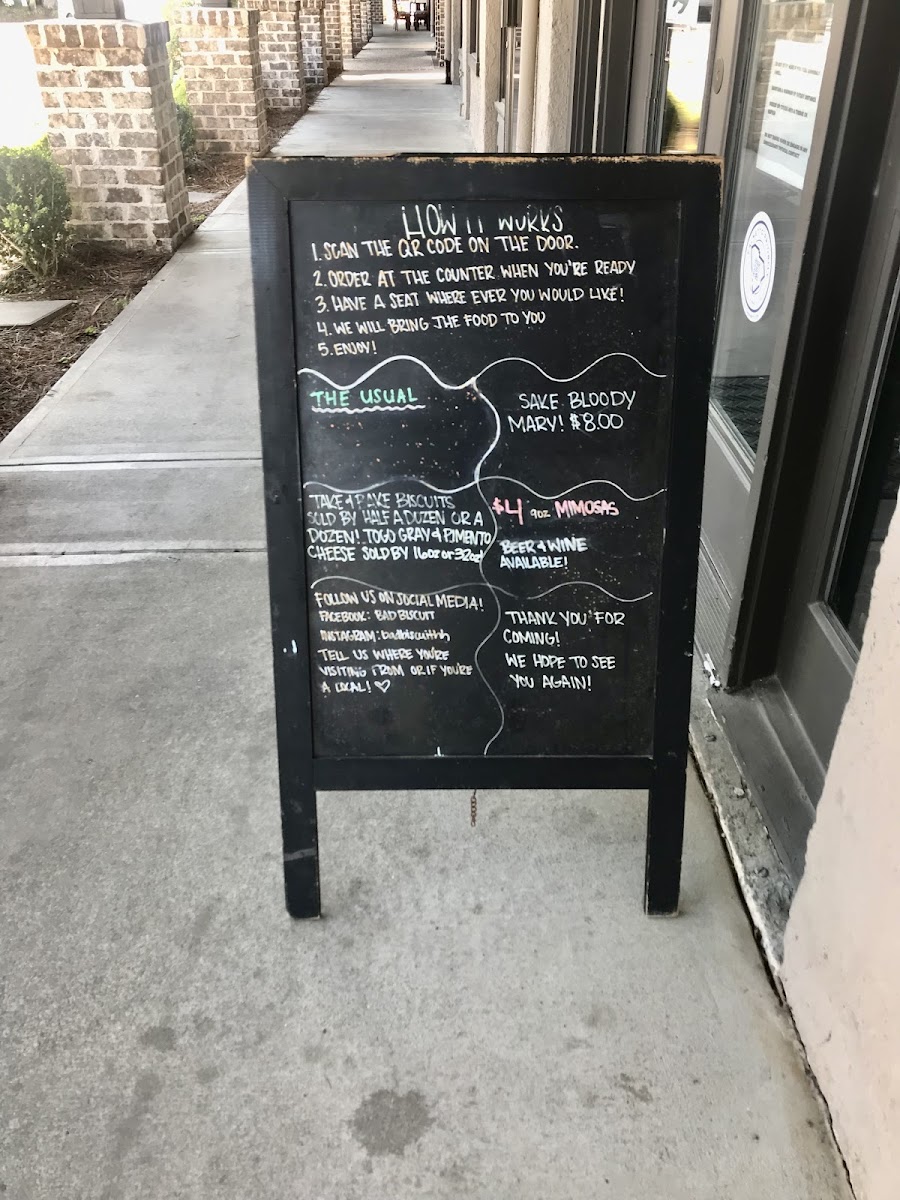 HOW IT WORKS
1. SCAN THE QR CODE ON THE DOOR.
2. ORDER AT THE COUNTER WHEN YOU'RE READY
3. HAVE A SEAT WHERE EVER YOU WOULD LIKE!
4. WE WILL BRING THE FOOD TO YOU
5. ENJOY!
THE USUAL
SAKE BLOODY
MARY! $8.00
TAKE & BAKE BISCUITS
SOLD BY HALF A DOZEN OR A
DOZEN! TOGO GRAY & PIMENTO
CHEESE SOLD BY 16oz or 32oz!
$4 9oz MIMOSAS
BEER & WINE
AVAILABLE!
FOLLOW US ON SOCIAL MEDIA!
FACEBOOK: BAD BISCUIT
INSTAGRAM:
TELL US WHERE YOU'RE
VISITING FROM OR IF YOU'RE
A LOCAL! ♡
THANK YOU FOR
COMING!
WE HOPE TO SEE
YOU AGAIN!